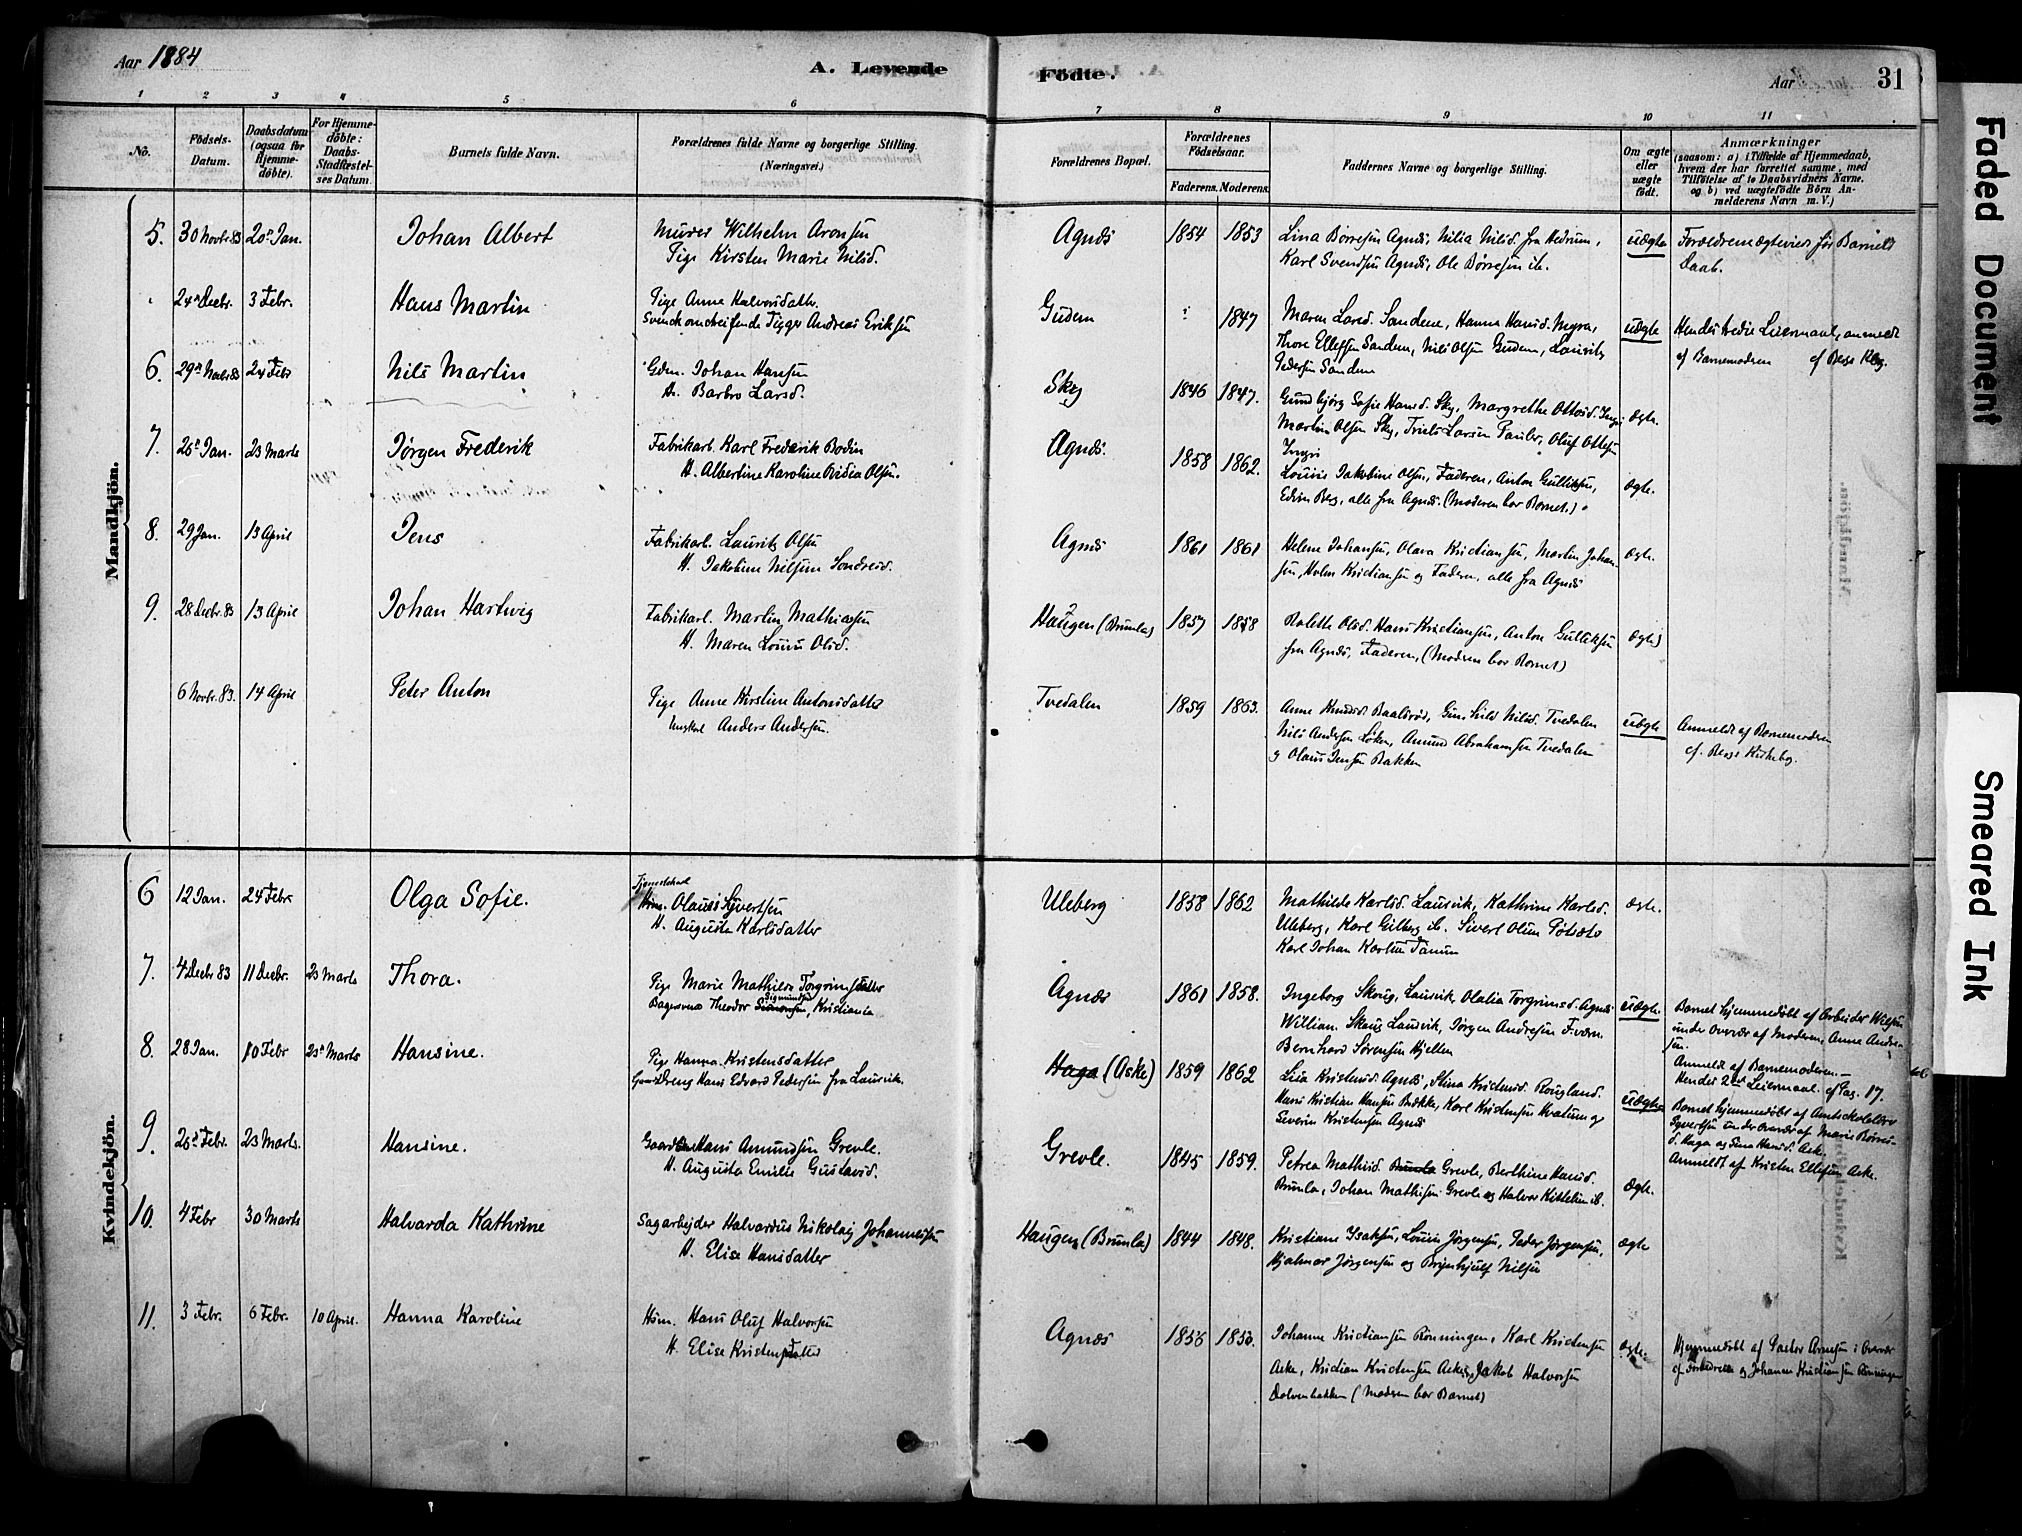 Aar 1884
A. Levende
Födte.
Aar
31
1 2 3 4 5 6 7 8 9 10 11
No.
Födsels-Datum.
Daabsdatum (ogsaa for Hjemmedöbte).
For Hjemmedöbte: Daabs-Stadfæstelses Datum.
Barnets fulde Navn.
Forældrenes fulde Navne og borgerlige Stilling.
(Næringsvei.)
Forældrenes Bopæl.
Forældrenes Födselsaar.
Faderens. Moderens.
Faddernes Navne og borgerlige Stilling.
Om ægte eller uægte födt.
Anmærkninger
(saasom: a) i Tilfælde af Hjemmedaab,
hvem der har forrettet samme, med
Tilföielse af to Daabsvidners Navne.
og b) ved uægtefödte Börn An-
melderens Navn m. V.)
Mandkjön.
5. 30 Novbr. 83 20 Jan. Johan Albert Murer Wilhelm Aronsen Agnæs 1854 1853 Lina Börresen Agnæs, Nilia Nilsd. fra Hedrum, uægte Forældrene ægteviede før Barnets
Pige Kirsten Marie Nilsd. Karl Svendsen Agnæs, Ole Børresen ib. Daab.
24 Decbr. 3 Febr. Hans Martin Pige Anne Halvorsdatter Gudem 1847 Maren Larsd. Sandene, Hanna Hansd. Myra, uægte Hendes tredie Leiermaal, anmeldt
Svensk omstreifende Tigger Andreas Eriksen Thore Ellefsen Sandem, Nils Olsen Gudem, Lauritz af Barnemoderen
Pedersen Sandem
6. 29 Novbr 83 24 Febr Nils Martin Gdm. Johan Hansen Sky 1846 1847. Gunbjörg Sofie Hansd. Sky, Margrethe Ottosd. ægte.
H. Barbro Larsd. Martin Olsen Sky, Larsen Pauler, Oluf Ottesen
7. 26 Jan. 23 Marts Jörgen Frederik Fabrikarb. Karl Frederik Bodin Agnæs. 1858 1862. Louise Jakobine Olsen, Faderen, Anton Gulliksen, ægte.
H. Albertine Karoline Olsen. Edvin Berg, alle fra Agnæs. (Moderen bar Barnet.)
8. 29 Jan. 13 April Jens Fabrikarb. Lauritz Olsen Agnæs 1861 1861 Helene Johansen, Olava Kristiansen, Martin Johan- ægte.
H. Jakobine Nilsine Sondresd. sen, Holm Kristiansen og Faderen, alle fra Agnæs
9. 28 Decbr. 83 13 April Johan Hartvig Fabrikarb. Martin Mathiasen Haugen (Brunla) 1857 1858 Rolette Olsd. Hans Kristiansen, Anton Gulliksen ægte
H. Maren Louise Olsd. fra Agnæs, Faderen, (Moderen bar Barnet)
6 Novbr. 83. 14 April Peter Anton Pige Anne Kirstine Antonsdatter Tvedalen 1859 1863. Anne Knudsd. Baalsrød, Gunhild Nilsd. Tvedalen uægte Anmeldt af Barnemoderen
Ungkarl Anders Andersen. Nils Andersen Löken, Amund Abrahamsen Tvedalen
og Olaus Jensen Bakken
Kvindekjön.
6 12 Jan. 24 Febr. Olga Sofie. Tjenestekarl Olaus Syvertsen Uleberg 1858 1862 Mathilde Karlsd. Laurvik, Kathrine Karlsd. ægte.
H. Augusta Karlsdatter Uleberg, Karl Gilberg ib. Sivert Olsen
Karl Johan Karlsen Tanum
7. 4 Decbr 83 11 Decbr. 23 Marts Thora. Pige Marie Mathilde Torgrimsdatter Agnæs 1861 1858. Ingeborg Skoug, Laurvik, Olalia Torgrimsd. Agnæs uægte. Barnet hjemmedöbt af Arbeider Nilsen
Theodor Sigmundsen, Kristiania William Skoug Laurvik, Jörgen Andresen under Overvær af Moderen, Anne Andre-
Bernhard Sörensen Kjellen sen.
Anmeldt af Barnemoderen.
8. 28 Jan. 10 Febr 23 Marts Hansine. Pige Hanna Kristensdatter Haga (Aske) 1859 1862 Lisa Kristensd. Agnæs, Stina Kristensd. Rougland. uægte Hendes 2det Leiermaal. cf Pag. 17.
Hans Edvard Pedersen fra Laurvik. Hans Kristian Hansen Bække, Karl Kristensen Kvatum og Barnet hjemmedöbt af Amtsskolelærer
Severin Kristensen Agnæs Syvertsen under Overvær af Marie
Anmeldt af Kristen Ellefsen Aske.
9. 26 Febr. 23 Marts. Hansine. Hans Amundsen Grevle. Grevle. 1845 1859. Petrea Mathisd. Grevle, Berthine Hansd. ægte.
H. Augusta Emilie Gustavsd. Brunla, Johan Mathisen Grevle og Halvor Kittelsen ib.
10. 4 Febr 30 Marts Halvarda Kathrine Sagarbejder Halvardus Nikolaj Johannesen Haugen (Brunla) 1844 1848. Kristiane Isaksen, Louise Jörgensen, Peder Jörgensen, ægte
H. Elise Hansdatter Hjalmar Jörgensen og Brynhjulf Nilsen
11. 3 Febr. 6 Febr. 10 April. Hanna Karoline Hsm. Hans Oluf Halvorsen Agnæs 1856 1856. Johanne Kristiansen Rönningen, Karl Kristensen ægte. Hjemmedöbt af Pastor Arnesen i Overvær
H. Elise Kristensdatter Aske, Kristian Kristensen Aske, Jakob Halvorsen af Forældrene og Johanne Kristiansen Rönningen
Dolvenbakken (Moderen bar Barnet)
Faded Document
Smeared Ink